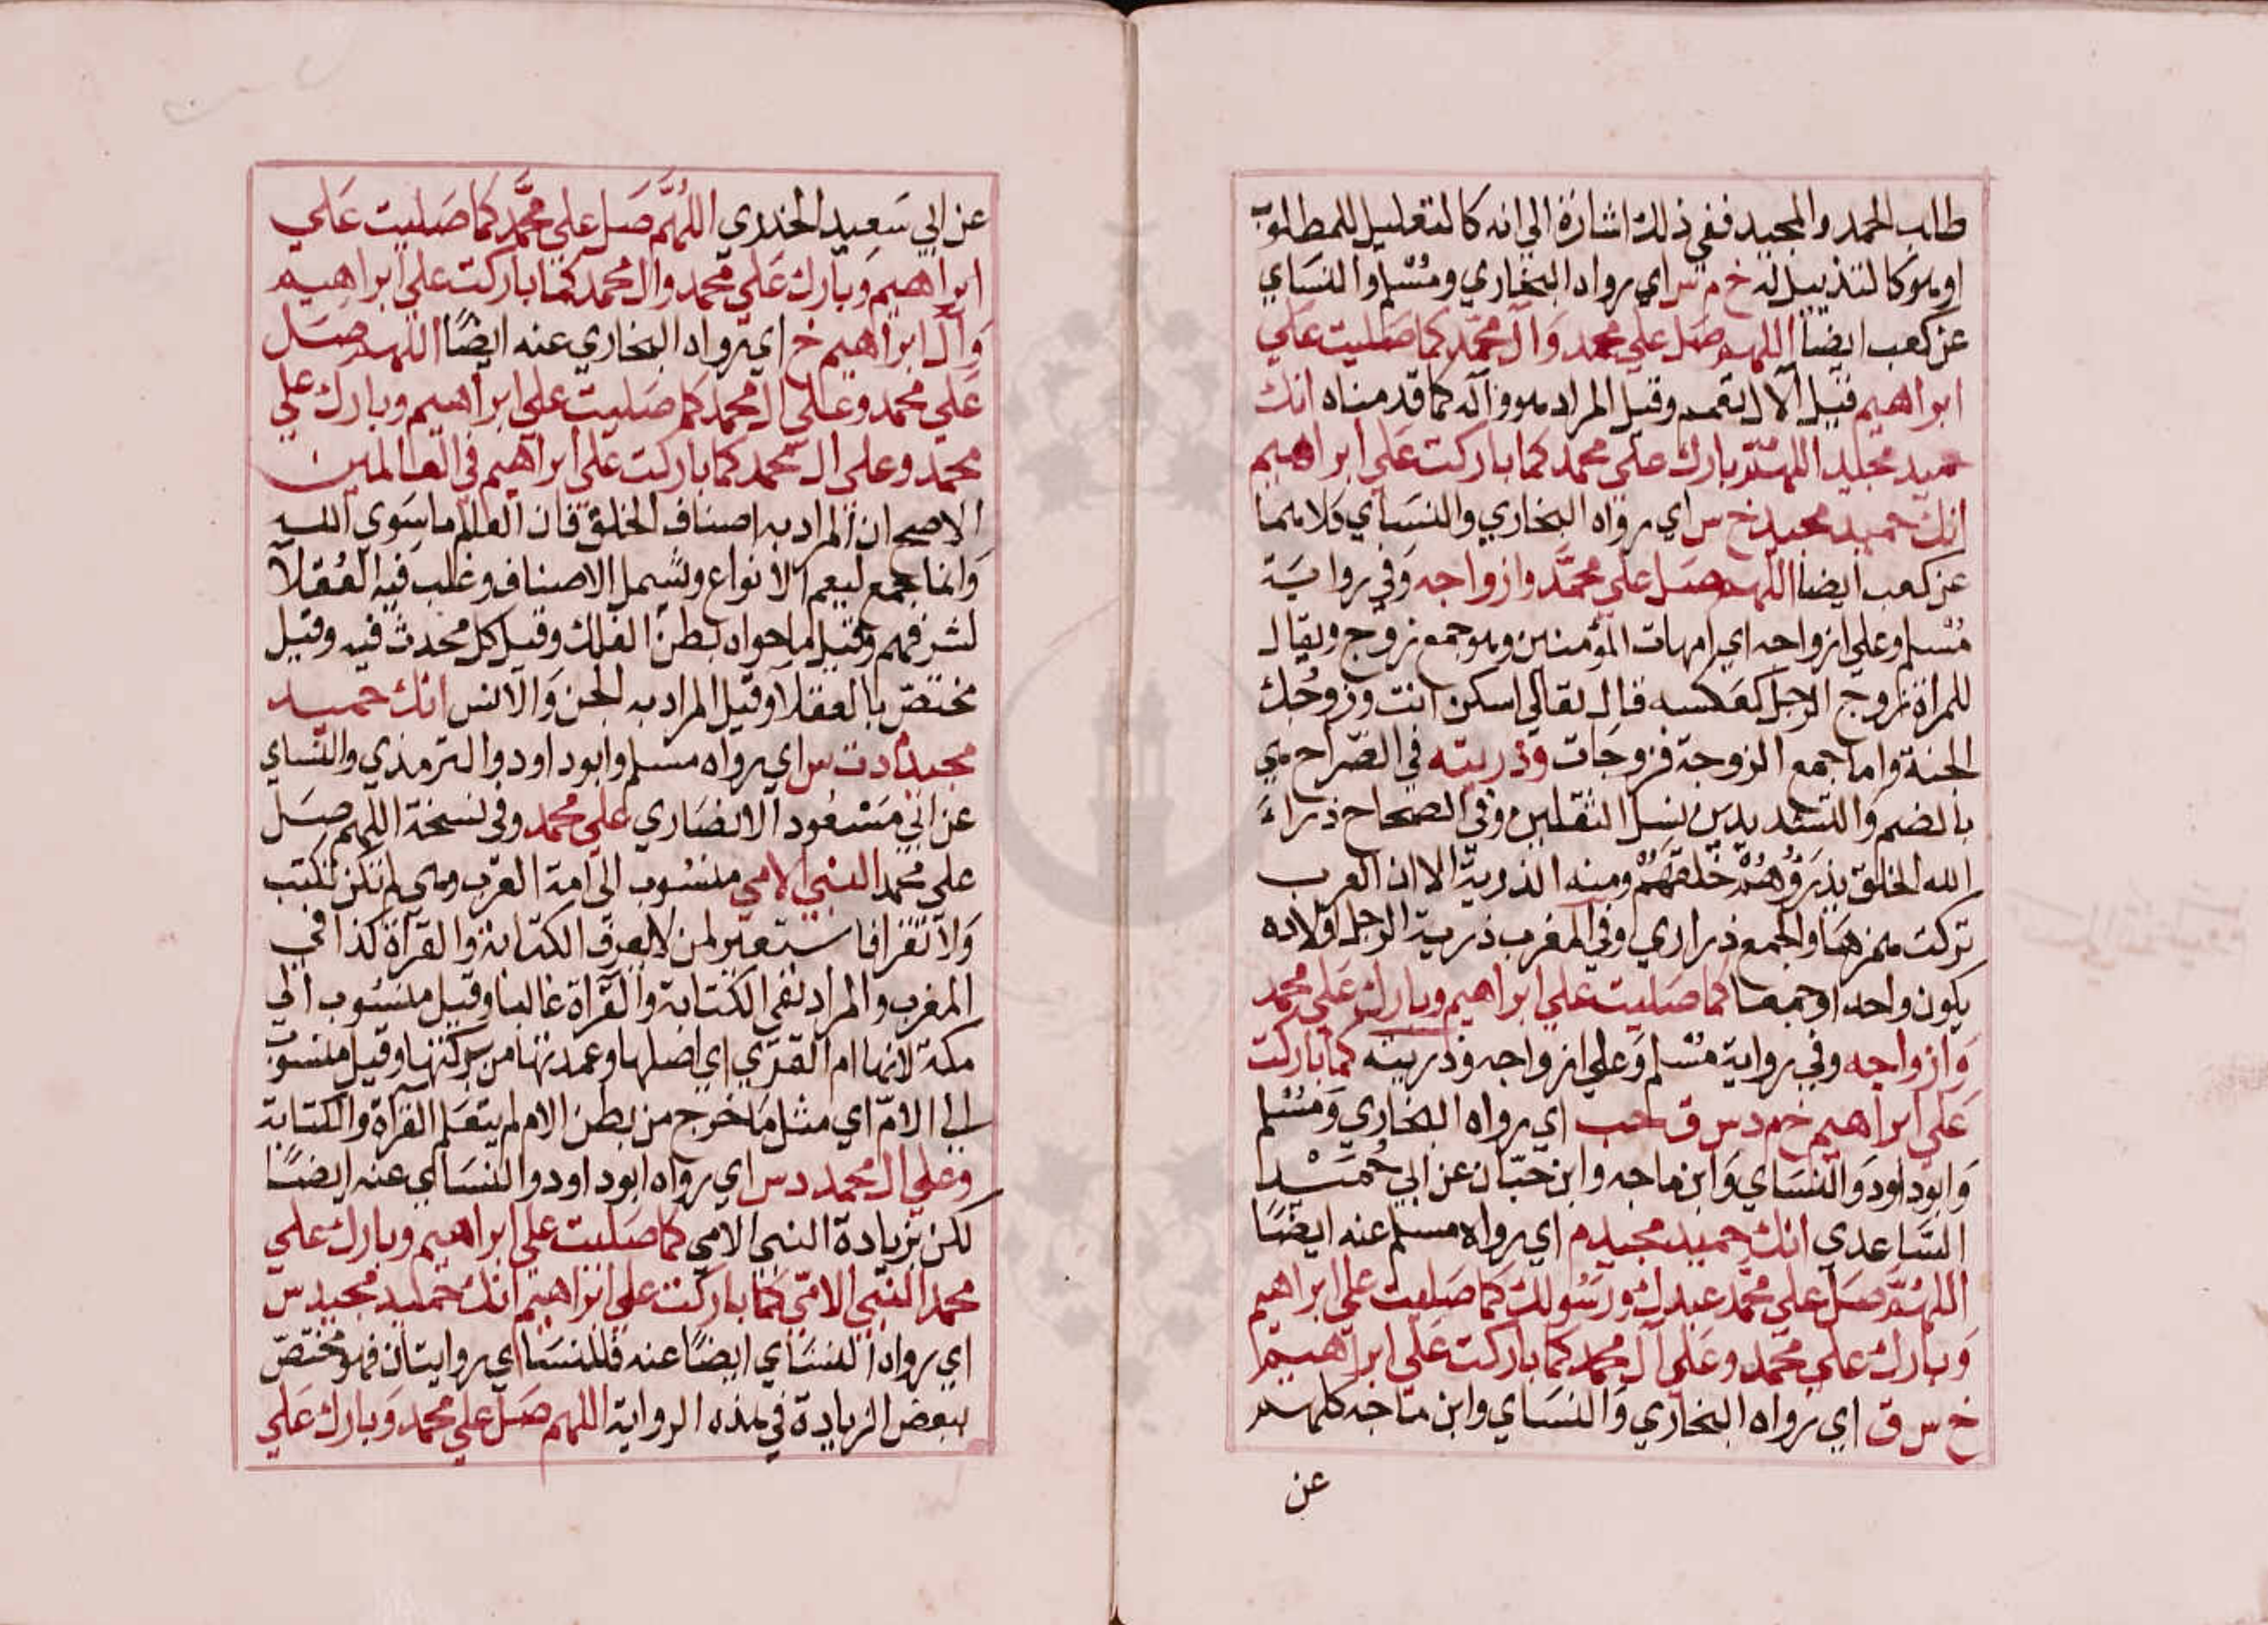 طالب الحمد والمجيد ففي ذلك اشارة الي انه كالتعليل للمطلوب
او هو كالتذييل له خ م س اي رواه البخاري ومسلم والنساي
عن كعب ايضا اللهم صل علي محمد وال محمد كما صليت علي
ابراهيم قيل الآل يقحم وقيل المراد هو وآله كما قدمناه انك
حميد مجيد اللهم بارك علي محمد كما باركت علي ابراهيم
انك حميد مجيد خ س اي رواه البخاري والنساي كلاهما
عن كعب ايضا اللهم صل علي محمد وازواجه وفي رواية
مسلم وعلي ازواجه اي امهات المؤمنين وهو جمع زوج ويقال
للمراة زوج الرجل كعكسه قال تعالي اسكن انت وزوجك
الجنة واما جمع الزوجة فزوجات وذريته في الصراح هي
بالضم والتشديدين نسل الثقلين وفي الصحاح ذراء
الله الخلق يذرؤهم خلقهم ومنه الذرية الا ان العرب
تركت همزها والجمع ذراري وفي المغرب ذرية الرجل اولاده
يكون واحدا وجمعا كما صليت علي ابراهيم وبارك علي محمد
وازواجه وفي رواية مسلم وعلي ازواجه وذريته كما باركت
علي ابراهيم خ م د س ق حب اي رواه البخاري ومسلم
وابو داود والنساي وابن ماجه وابن حبان عن ابي حميد
الساعدي انك حميد مجيد م اي رواه مسلم عنه ايضا
اللهم صل علي محمد عبدك ورسولك كما صليت علي ابراهيم
وبارك علي محمد وعلي آل محمد كما باركت علي ابراهيم
خ س ق اي رواه البخاري والنساي وابن ماجه كلهم
عن
عن ابي سعيد الخدري اللهم صل علي محمد كما صليت علي
ابراهيم وبارك علي محمد وال محمد كما باركت علي ابراهيم
وآل ابراهيم خ اي رواه البخاري عنه ايضا اللهم صل
علي محمد وعلي ال محمد كما صليت علي ابراهيم وبارك علي
محمد وعلي ال محمد كما باركت علي ابراهيم في العالمين
الاصح ان المراد به اصناف الخلق فان العالم ما سوي الله
وانما جمع ليعم الانواع وشمل الاصناف وغلب فيه العقلا
لشرفهم وقيل ما حواه بطن الفلك وقيل كل محدث فيه وقيل
مختص بالعقلا وقيل المراد به الجن والانس انك حميد
مجيد م د ت س اي رواه مسلم وابو داود والترمذي والنساي
عن ابي مسعود الانصاري علي محمد وفي نسخة اللهم صل
علي محمد النبي الامي منسوب الي امة العرب وهي لم تكن تكتب
ولا تقرا فاستعير لمن لا يعرف الكتابة والقرآة كذا في
المغرب والمراد نفي الكتابة والقرآة غالبا وقيل منسوب الي
مكة لانها ام القري اي اصلها وعمدتها من بركتها وقيل منسوب
الي الام اي مثل ما خرج من بطن الام لم يتعلم القرآة والكتابة
وعلي ال محمد د س اي رواه ابو داود والنساي عنه ايضا
لكن بزيادة النبي الامي كما صليت علي ابراهيم وبارك علي
محمد النبي الامي كما باركت علي ابراهيم انك حميد مجيد س
اي رواه النساي ايضا عنه فللنساي روايتان فهو مختص
ببعض الزيادة في هذه الرواية اللهم صل علي محمد وبارك علي